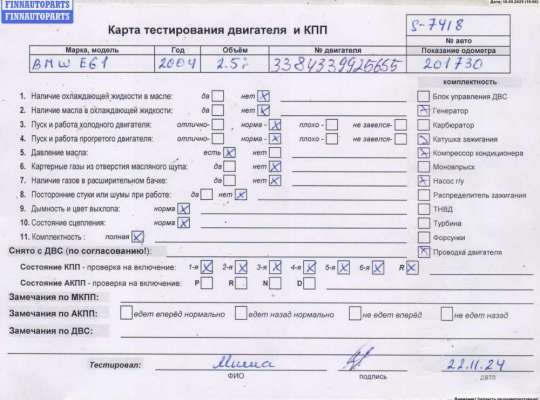 FINNAUTOPARTS
FINNAUTOPARTS
Карта тестирования двигателя и КПП
S-7418
№ авто
Марка, модель Год Объём № двигателя Показание одометра
BMW E61 2004 2.5 201730
комплектность
1. Наличие охлаждающей жидкости в масле: да нет
2. Наличие масла в охлаждающей жидкости: да нет
3. Пуск и работа холодного двигателя: отлично- норма - плохо - не завелся-
4. Пуск и работа прогретого двигателя: отлично- норма - плохо - не завелся-
5. Давление масла: есть нет
6. Картерные газы из отверстия масляного щупа: да нет
7. Наличие газов в расширительном бачке: да нет
8. Посторонние стуки или шумы при работе: да нет
9. Дымность и цвет выхлопа: норма
10. Состояние сцепления: норма
11. Комплектность : полная
Блок управления ДВС
Генератор
Карбюратор
Катушка зажигания
Компрессор кондиционера
Моновпрыск
Насос г/у
Распределитель зажигания
ТНВД
Турбина
Форсунки
Проводка двигателя
Снято с ДВС (по согласованию!):
Состояние КПП - проверка на включение: 1-я 2-я 3-я 4-я 5-я 6-я R
Состояние АКПП - проверка на включение: P R N D
Замечания по МКПП:
Замечания по АКПП: едет вперёд нормально едет назад нормально не едет вперёд не едет назад
Замечания по ДВС:
Тестировал: Миша 22.11.24
ФИО подпись дата